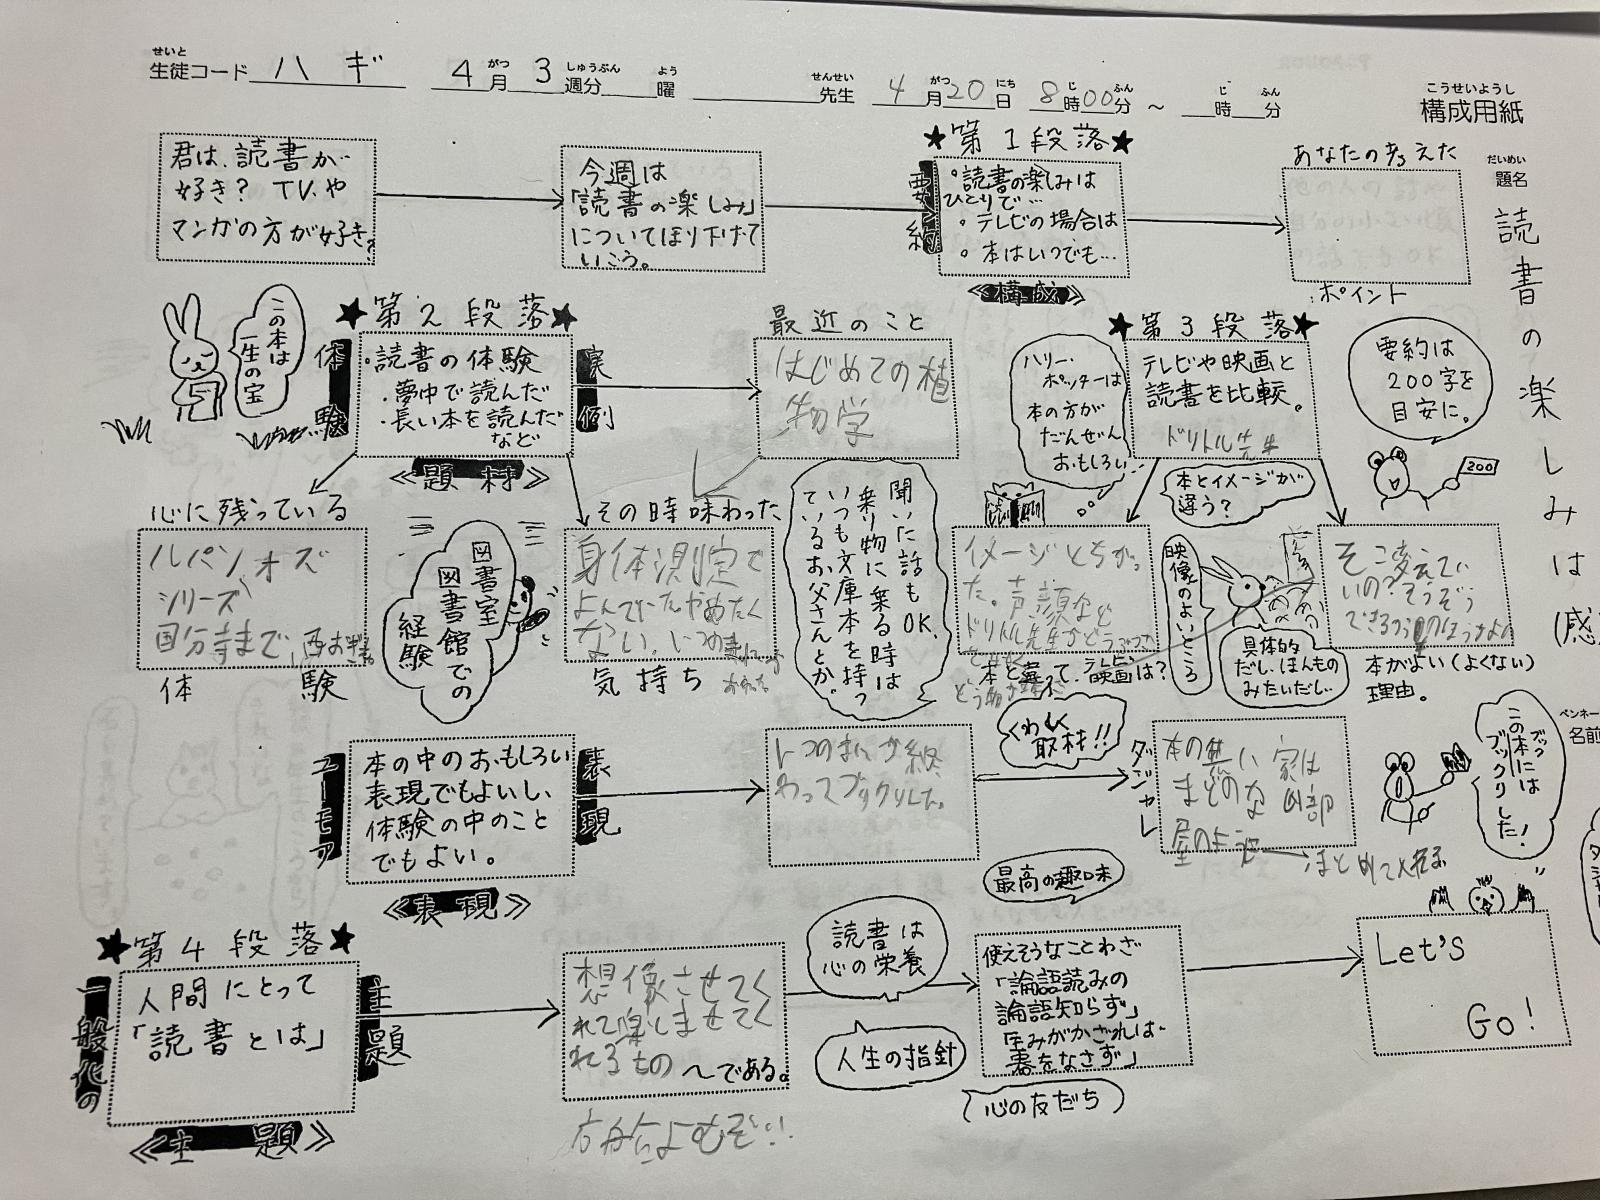 せいと
生徒コード ハギ 4月3週分 曜 先生 4月20日 8時00分 ～ 時 分
がつ しゅうぶん よう せんせい がつ にち じ ふん じ ふん
こうせいようし
構成用紙
だいめい
題名
読書の楽しみは
(感
ペンネー
名前
君は、読書が
好き? TVや
マンガの方が好き?
今週は
「読書の楽しみ」
についてほり下げて
いこう。
★第1段落★
要約
。読書の楽しみは
ひとりで…
。テレビの場合は
。本はいつでも…
≪構成≫
あなたの考えた
ポイント
この本は
一生の宝
★第2段落★
体験
・読書の体験
・夢中で読んだ
・長い本を読んだ
など
実例
≪題材≫
最近のこと
はじめての植
物学
ハリー・
ポッターは
本の方が
だんぜん
おもしろい
★第3段落★
テレビや映画と
読書を比較。
ドリトル先生
要約は
200字を
目安に。
200
本とイメージが
違う?
心に残っている
ルパン、オズ
シリーズ
国分寺まで
体験
図書室
図書館での
経験
その時味わった
身体測定で
よんでいたやめたく
ない、いつの
気持ち
聞いた話もOK.
乗り物に乗る時は
いつも文庫本を持っ
ているお父さんとか。
イメージとちがっ
た。声、顔など
本と違って、テレビ
映画は?
映像のよいところ
具体的
だし、ほんもの
みたいだし…
そこ変えてい
いの?そうぞう
できる
本がよい(よくない)
理由。
ユーモア
本の中のおもしろい
表現でもよいし、
体験の中のこと
でもよい。
表現
≪表現≫
いつのまにか終
わってブックリした。
くわしく
取材!!
ダジャレ
本の無い家は
まどのな
屋のよう
まとめて大様子
ブック
この本には
ブックリした!
最高の趣味
★第4段落★
一般化の
人間にとって
「読書とは」
主題
≪主題≫
想像させてく
れて楽しませてく
れるもの
～である。
読書は
心の栄養
人生の指針
心の友だち
使えそうなことわざ
「論語読みの
論語知らず」
「厚みがかさなれば
裏をなさず」
Let's
Go!